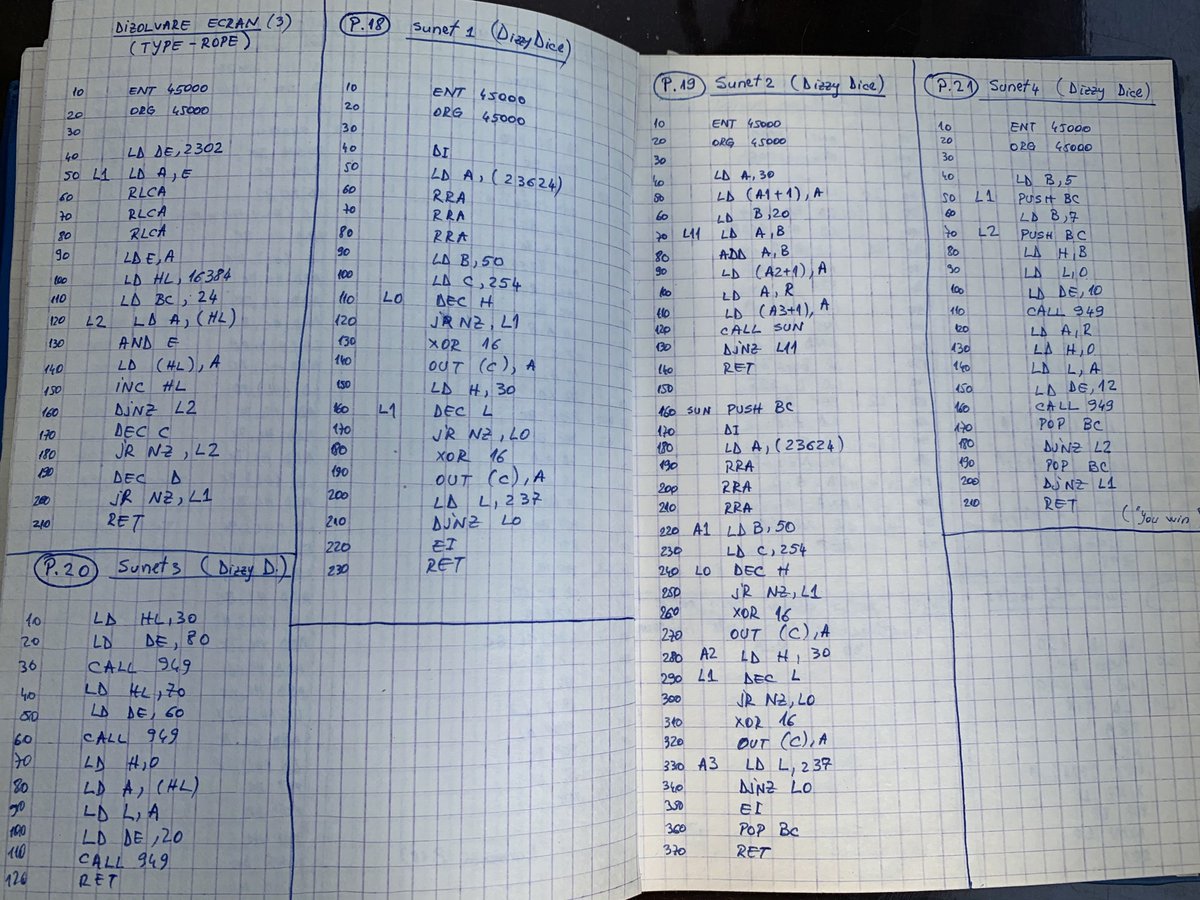 DIZOLVARE ECRAN (3)
(TYPE-ROPE)
10 ENT 45000
20 ORG 45000
30
40 LD DE,2302
50 L1 LD A,E
60 RLCA
70 RLCA
80 RLCA
90 LD E,A
100 LD HL,16384
110 LD BC,24
120 L2 LD A,(HL)
130 AND E
140 LD (HL),A
150 INC HL
160 DJNZ L2
170 DEC C
180 JR NZ,L2
190 DEC D
200 JR NZ,L1
210 RET
P.20 Sunet 3 (Dizzy D.)
10 LD HL,30
20 LD DE,80
30 CALL 949
40 LD HL,70
50 LD DE,60
60 CALL 949
70 LD H,0
80 LD A,(HL)
90 LD L,A
100 LD DE,20
110 CALL 949
120 RET
P.18 Sunet 1 (Dizzy Dice)
10 ENT 45000
20 ORG 45000
30
40 DI
50 LD A,(23624)
60 RRA
70 RRA
80 RRA
90 LD B,50
100 LD C,254
110 L0 DEC H
120 JR NZ,L1
130 XOR 16
140 OUT (C),A
150 LD H,30
160 L1 DEC L
170 JR NZ,L0
180 XOR 16
190 OUT (C),A
200 LD L,237
210 DJNZ L0
220 EI
230 RET
P.19 Sunet 2 (Dizzy Dice)
10 ENT 45000
20 ORG 45000
30
40 LD A,30
50 LD (A1+1),A
60 LD B,20
70 L11 LD A,B
80 ADD A,B
90 LD (A2+1),A
100 LD A,R
110 LD (A3+1),A
120 CALL SUN
130 DJNZ L11
140 RET
150
160 SUN PUSH BC
170 DI
180 LD A,(23624)
190 RRA
200 RRA
210 RRA
220 A1 LD B,50
230 LD C,254
240 L0 DEC H
250 JR NZ,L1
260 XOR 16
270 OUT (C),A
280 A2 LD H,30
290 L1 DEC L
300 JR NZ,L0
310 XOR 16
320 OUT (C),A
330 A3 LD L,237
340 DJNZ L0
350 EI
360 POP BC
370 RET
P.21 Sunet 4 (Dizzy Dice)
10 ENT 45000
20 ORG 45000
30
40 LD B,5
50 L1 PUSH BC
60 LD B,7
70 L2 PUSH BC
80 LD H,B
90 LD L,0
100 LD DE,10
110 CALL 949
120 LD A,R
130 LD H,0
140 LD L,A
150 LD DE,12
160 CALL 949
170 POP BC
180 DJNZ L2
190 POP BC
200 DJNZ L1
210 RET
("you win"